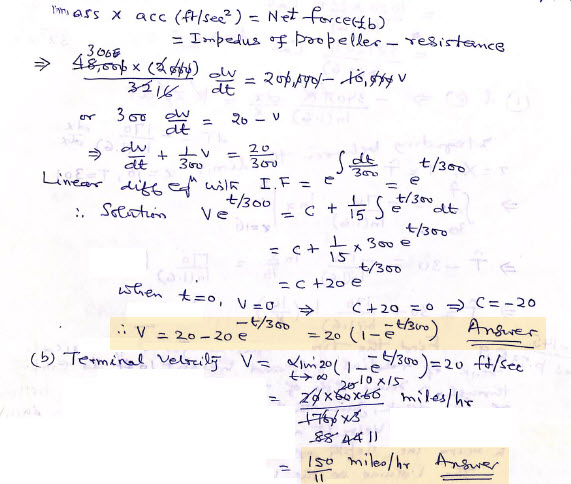 mass x acc (ft/sec²) = Net force(lb)
= Impedus of propeller - resistance
⇒ 48,000 x (2000) / 32 16 dv/dt = 200,000 - 10,000 v
3000
or 300 dv/dt = 20 - v
⇒ dv/dt + 1/300 v = 20/300
Linear diff eqⁿ with I.F = e^∫dt/300 = e^t/300
∴ Solution Ve^t/300 = c + 1/15 ∫ e^t/300 dt
= c + 1/15 x 300 e^t/300
= c + 20 e^t/300
when t=0, V=0 ⇒ C+20 = 0 ⇒ C = -20
∴ V = 20 - 20 e^-t/300 = 20 (1 - e^-t/300) Answer
(b) Terminal Velocity V = lim t→∞ 20(1 - e^-t/300) = 20 ft/sec
= 20 x 60 x 60 / 1760 x 3 miles/hr
20 10 x 15
88 44 11
= 150/11 miles/hr Answer